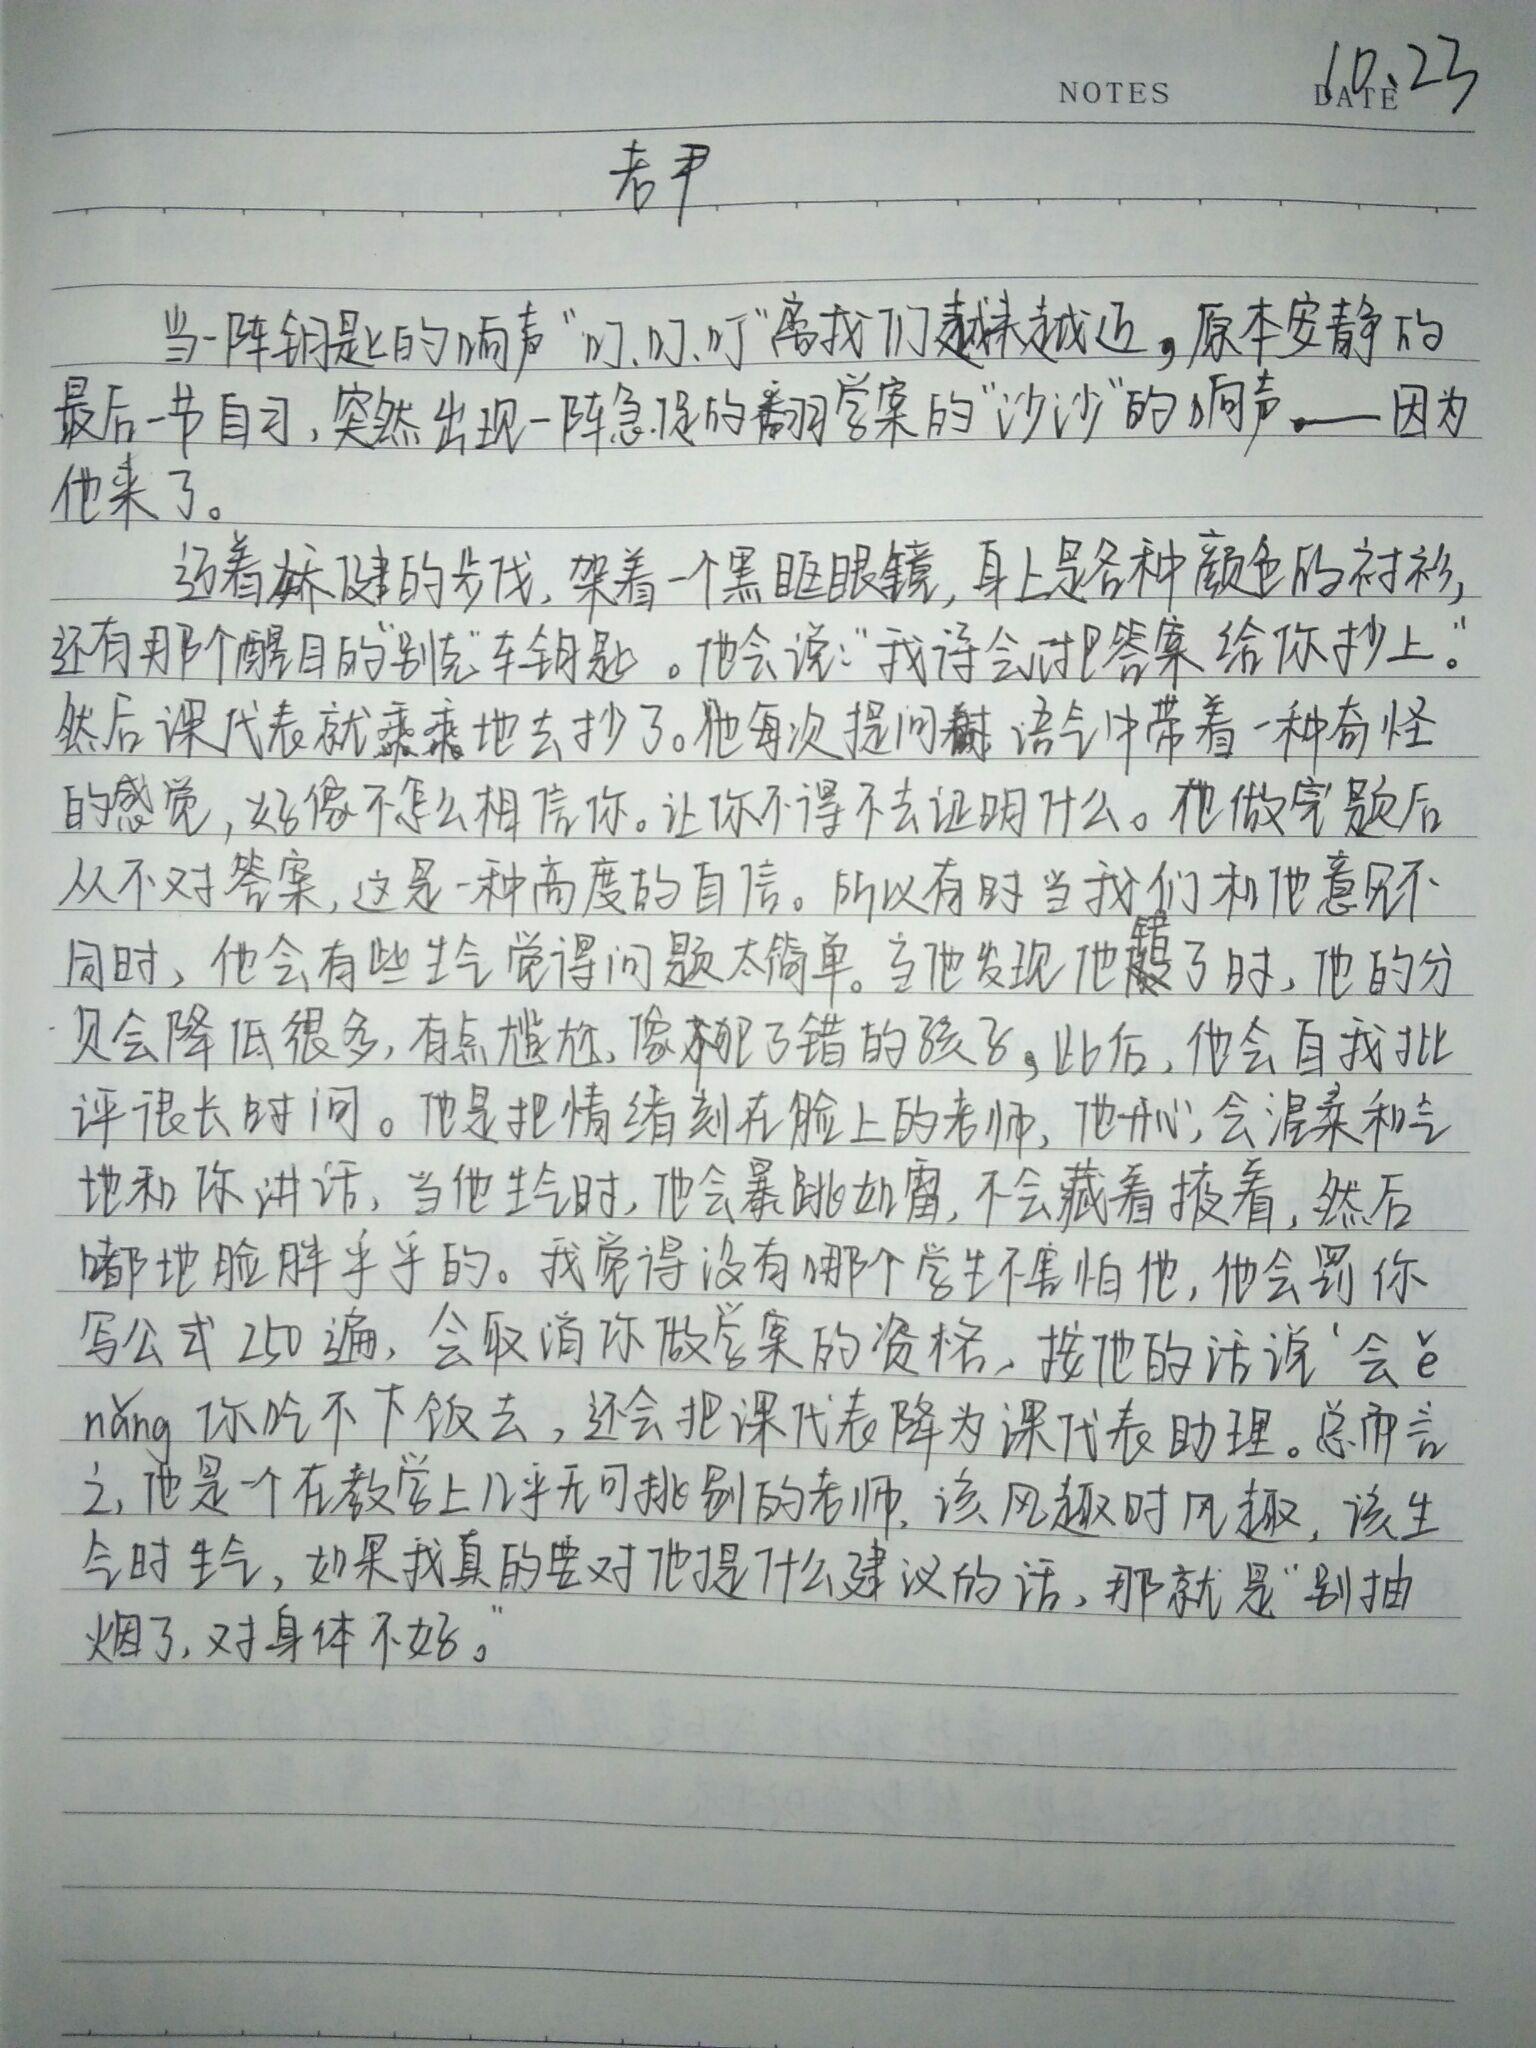 NOTES
DATE 10.23
老尹
当一阵钥匙的响声“叮、叮、叮”离我们越来越近，原本安静的
最后一节自习，突然出现一阵急促的翻学案的“沙沙”的响声——因为
他来了。
迈着矫健的步伐，架着一个黑眶眼镜，身上是各种颜色的衬衫，
还有那个醒目的“别克”车钥匙。他会说：“我待会儿把答案给你抄上。”
然后课代表就乖乖地去抄了。他每次提问时语气中带着一种奇怪
的感觉，好像不怎么相信你。让你不得不去证明什么。他做完题后
从不对答案，这是一种高度的自信。所以有时当我们和他意见不
同时，他会有些生气觉得问题太简单。当他发现他错了时，他的分
贝会降低很多，有点尴尬，像犯了错的孩子，此后，他会自我批
评很长时间。他是把情绪刻在脸上的老师，他开心，会温柔和气
地和你讲话，当他生气时，他会暴跳如雷，不会藏着掖着，然后
嘟地脸胖乎乎的。我觉得没有哪个学生不害怕他，他会罚你
写公式250遍，会取消你做学案的资格，按他的话说‘会ě
nǎng你吃不下饭去，还会把课代表降为课代表助理。总而言
之，他是一个在教学上几乎无可挑剔的老师，该风趣时风趣，该生
气时生气，如果我真的要对他提什么建议的话，那就是“别抽
烟了，对身体不好。”